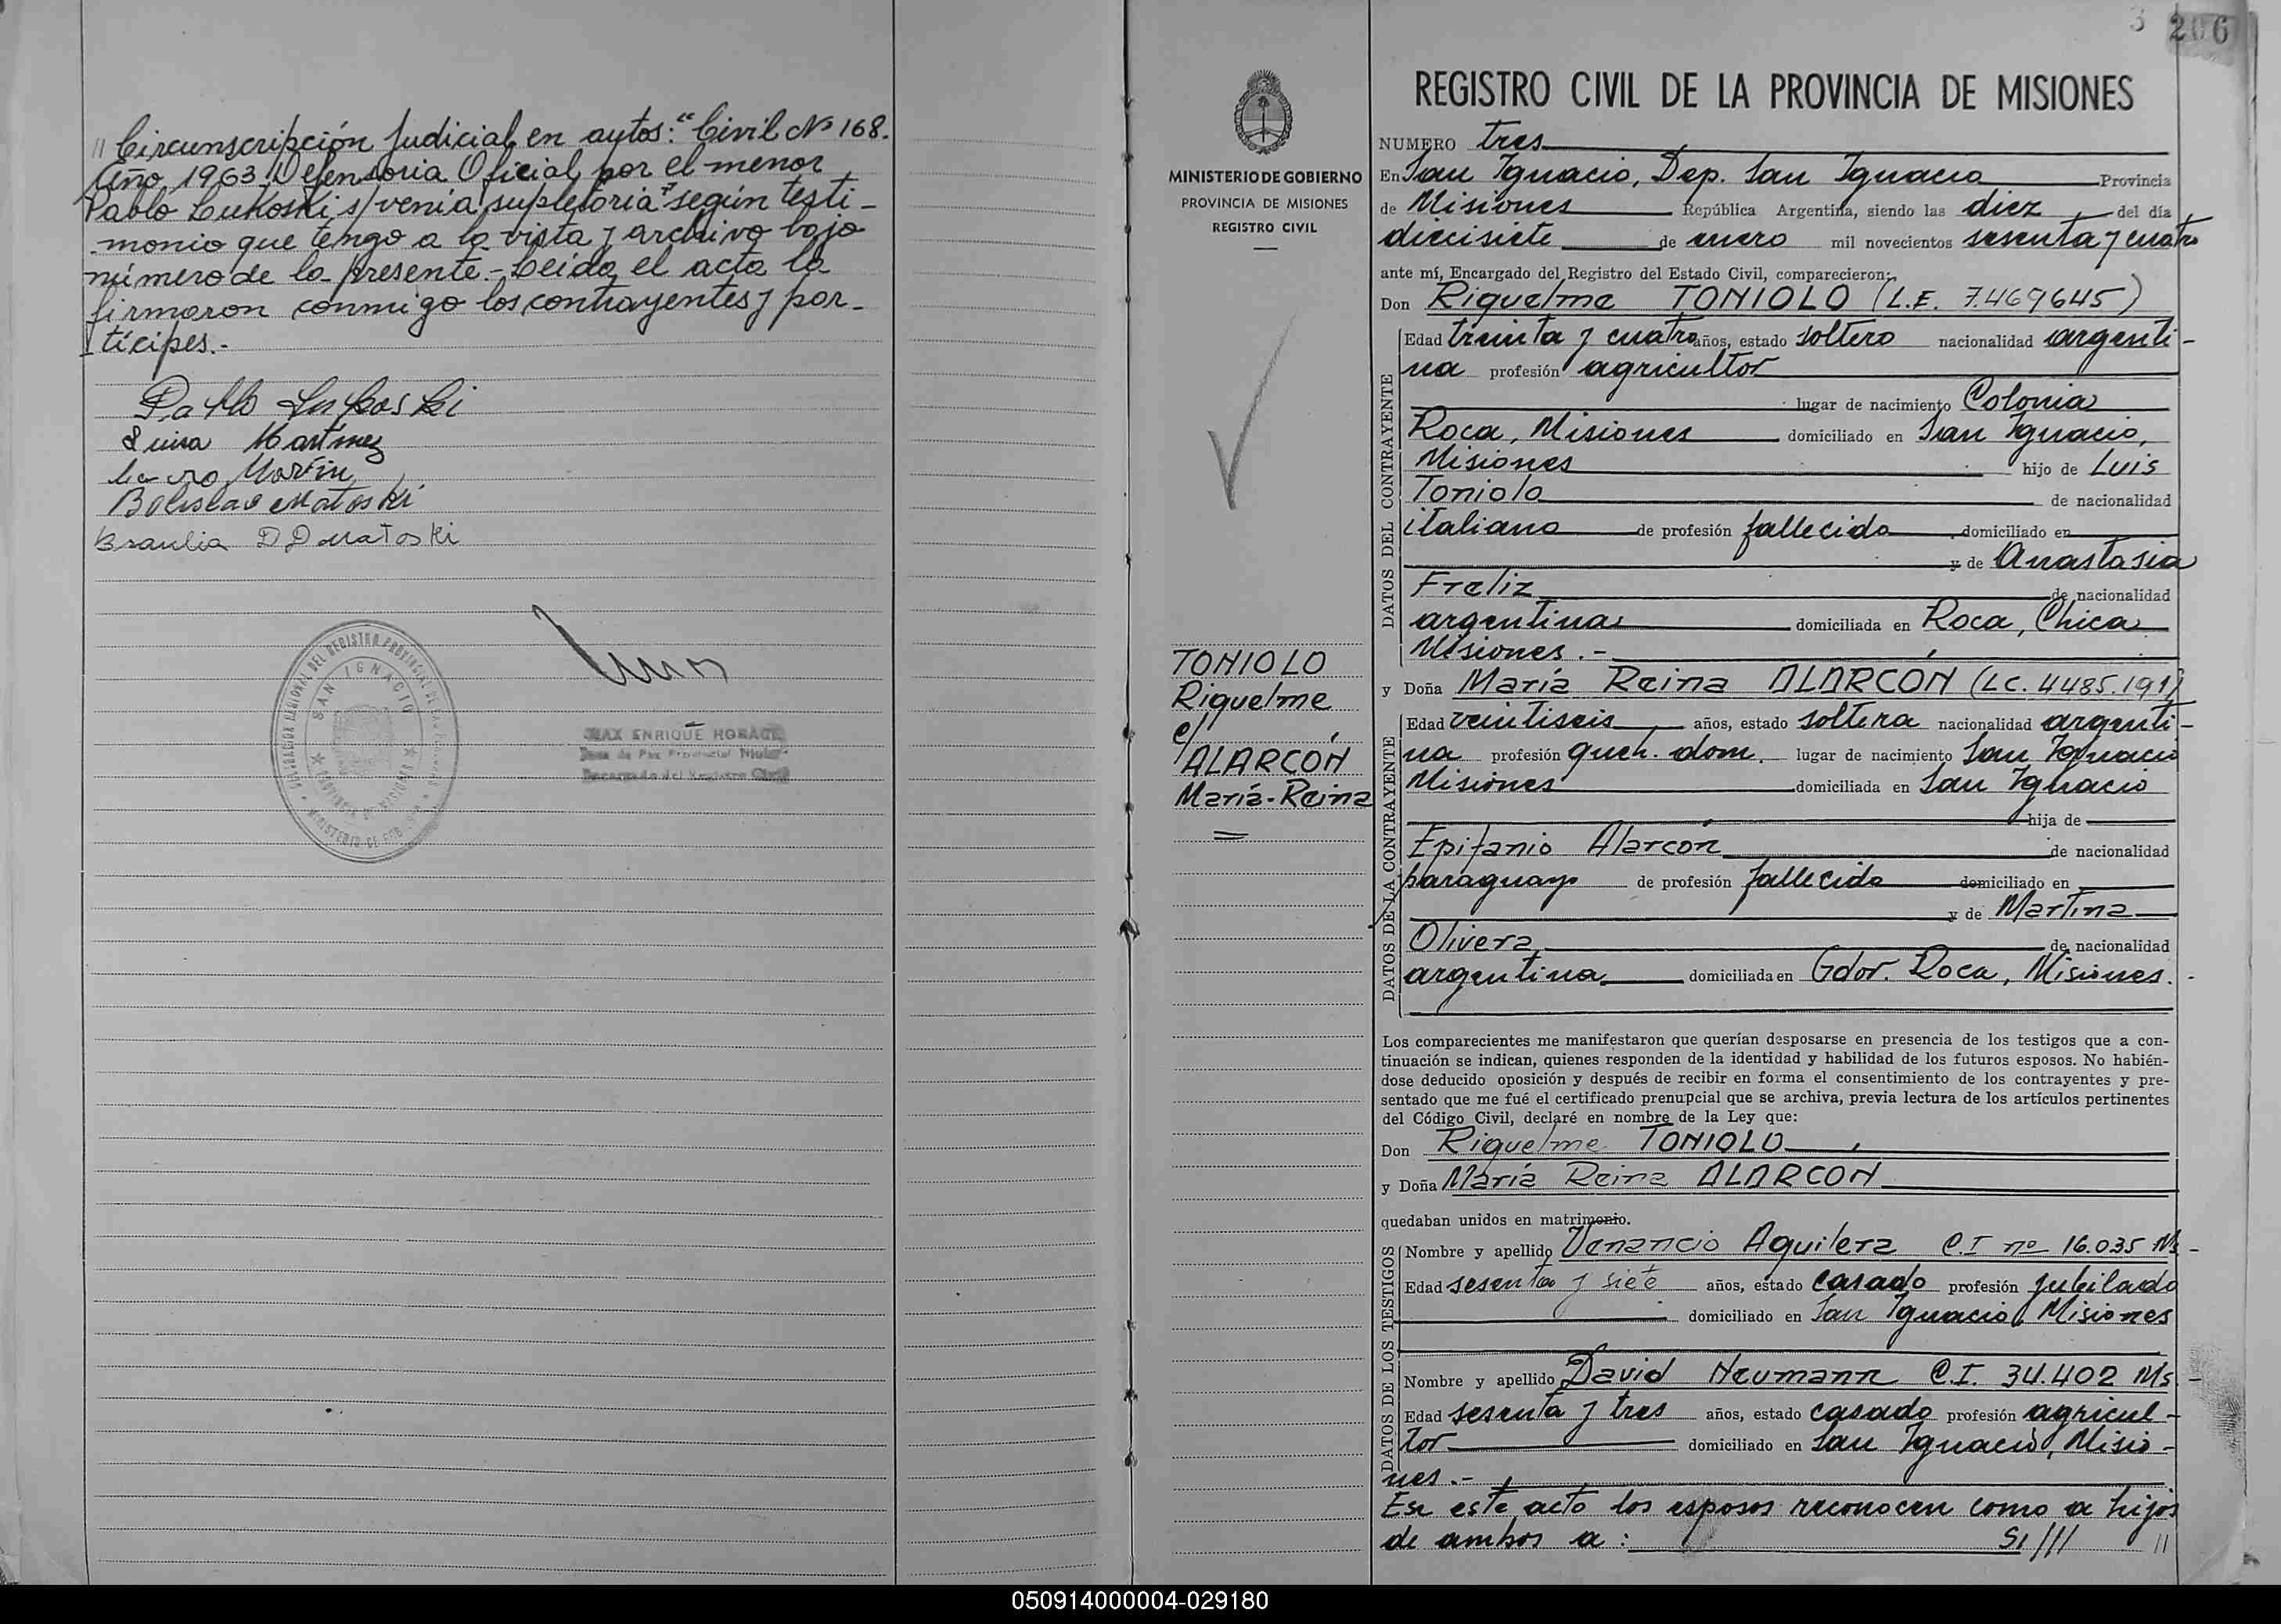 // Circunscripción Judicial en autos: "Civil Nº 168.
Año 1963 Defensoria Oficial por el menor
Pablo Lukoski s/venia supletoria" según testi-
monio que tengo a la vista y archivo bajo
número de la presente.- Leida el acta la
firmaron conmigo los contrayentes y par-
tícipes.-
Pablo Lukoski
Luisa Martinez
Martin
Boleslao Matoski
Braulia D D Matoski
SAN IGNACIO
MAX ENRIQUE NORAGE
Juez de Paz Provincial Titular
Encargado del Registro Civil
3 206
MINISTERIO DE GOBIERNO
PROVINCIA DE MISIONES
REGISTRO CIVIL
TONIOLO
Riquelme
c/
ALARCÓN
María-Reina
REGISTRO CIVIL DE LA PROVINCIA DE MISIONES
NUMERO tres
En San Ignacio, Dep. San Ignacio Provincia
de Misiones República Argentina, siendo las diez del día
diecisiete de enero mil novecientos sesenta y cuatro
ante mí, Encargado del Registro del Estado Civil, comparecieron:
Don Riquelme TONIOLO (L.E. 7.469645)
DATOS DEL CONTRAYENTE
Edad treinta y cuatro años, estado soltero nacionalidad argenti-
na profesión agricultor
lugar de nacimiento Colonia
Roca, Misiones domiciliado en San Ignacio,
Misiones hijo de Luis
Toniolo de nacionalidad
italiano de profesión fallecido domiciliado en
y de Anastasia
Freliz de nacionalidad
argentina domiciliada en Roca, Chica
Misiones.-
y Doña María Reina ALARCÓN (LC. 4485.191)
DATOS DE LA CONTRAYENTE
Edad veintiseis años, estado soltera nacionalidad argenti-
na profesión queh. dom. lugar de nacimiento San Ignacio
Misiones domiciliada en San Ignacio
hija de
Epifanio Alarcón de nacionalidad
paraguayo de profesión fallecido domiciliado en
y de Martina
Olivera de nacionalidad
argentina domiciliada en Gdor. Roca, Misiones.-
Los comparecientes me manifestaron que querían desposarse en presencia de los testigos que a con-
tinuación se indican, quienes responden de la identidad y habilidad de los futuros esposos. No habién-
dose deducido oposición y después de recibir en forma el consentimiento de los contrayentes y pre-
sentado que me fué el certificado prenupcial que se archiva, previa lectura de los artículos pertinentes
del Código Civil, declaré en nombre de la Ley que:
Don Riquelme TONIOLO
y Doña María Reina ALARCÓN
quedaban unidos en matrimonio.
DATOS DE LOS TESTIGOS
Nombre y apellido Venancio Aguilera C.I nº 16.035 Ms-
Edad sesenta y siete años, estado casado profesión jubilado
domiciliado en San Ignacio, Misiones
Nombre y apellido David Neumann C.I. 34.402 Ms.-
Edad sesenta y tres años, estado casado profesión agricul-
tor domiciliado en San Ignacio, Misio-
nes.-
En este acto los esposos reconocen como a hijos
de ambos a: SI/// //
050914000004-029180